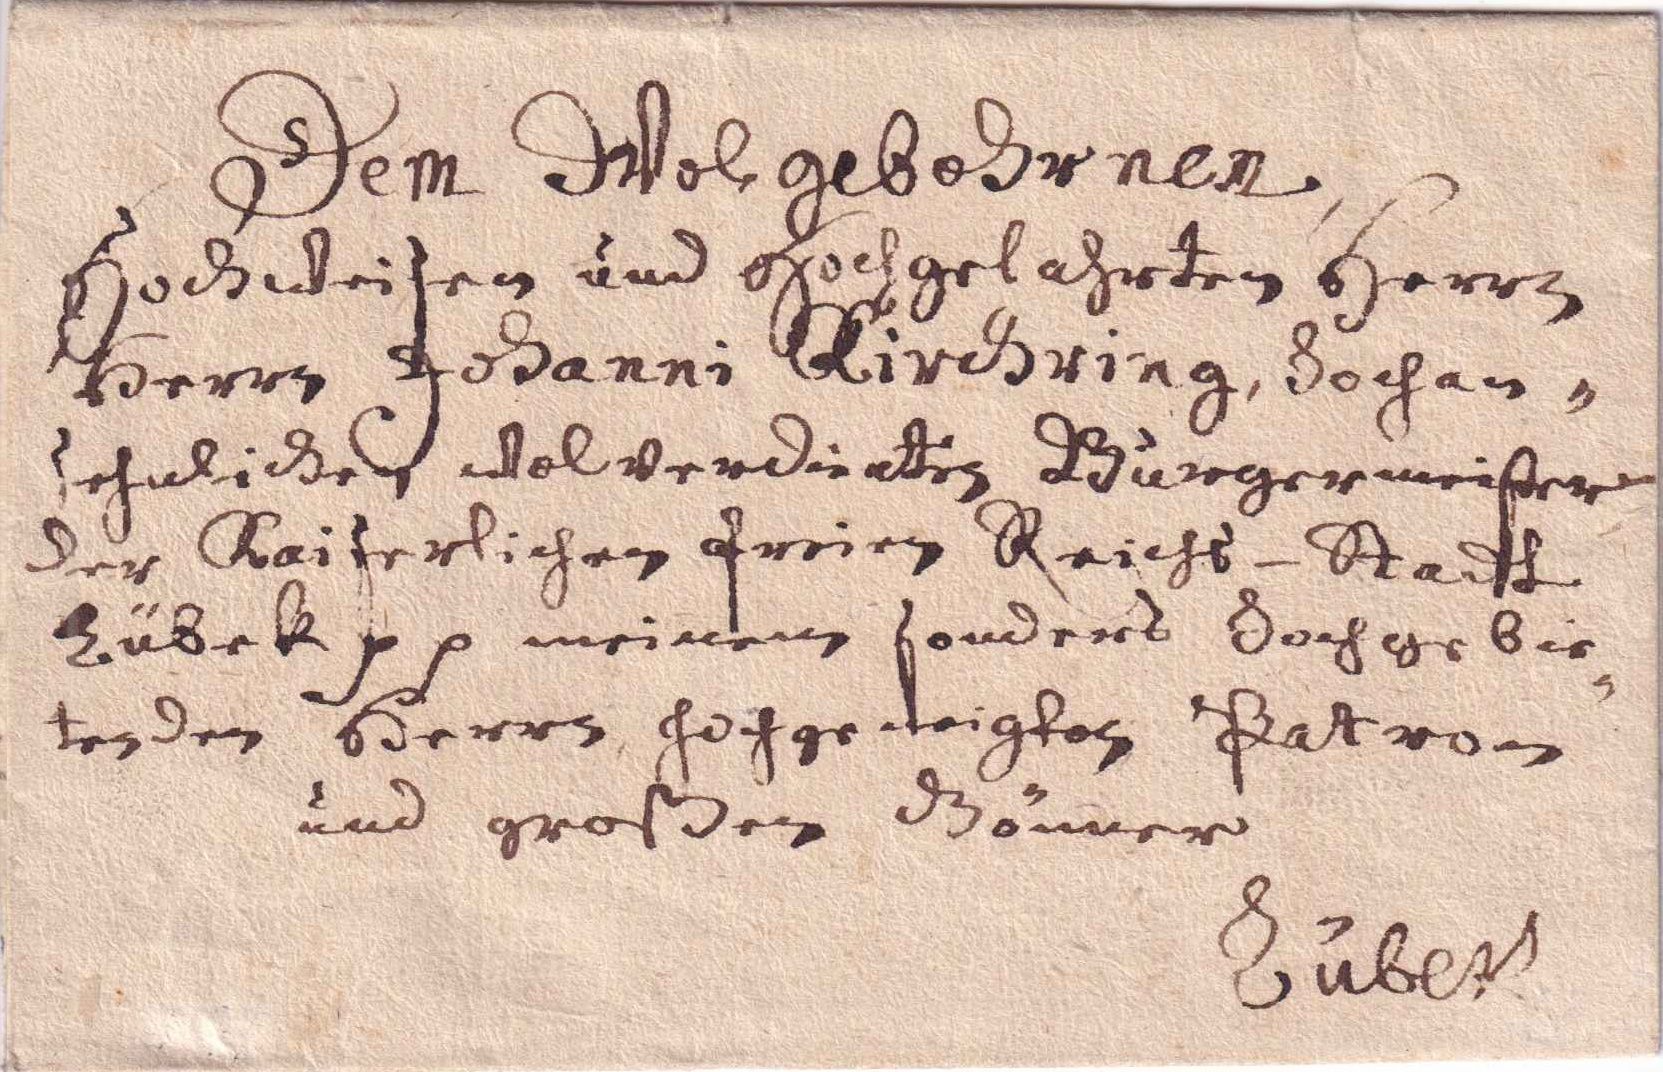 Dem Wolgebohrnen,
Hochweisen und Hochgelahrten Herrn
Herrn Johanni Kirchring, Hochan„
sehnlichen wolverdienten Bürgermeister
der Kaiserlichen freien Reichs-Stadt
Lübek pp meinem sonders Hochgebie„
tenden Herrn hochgeneigten Patron
und großen Gönner
Lübek